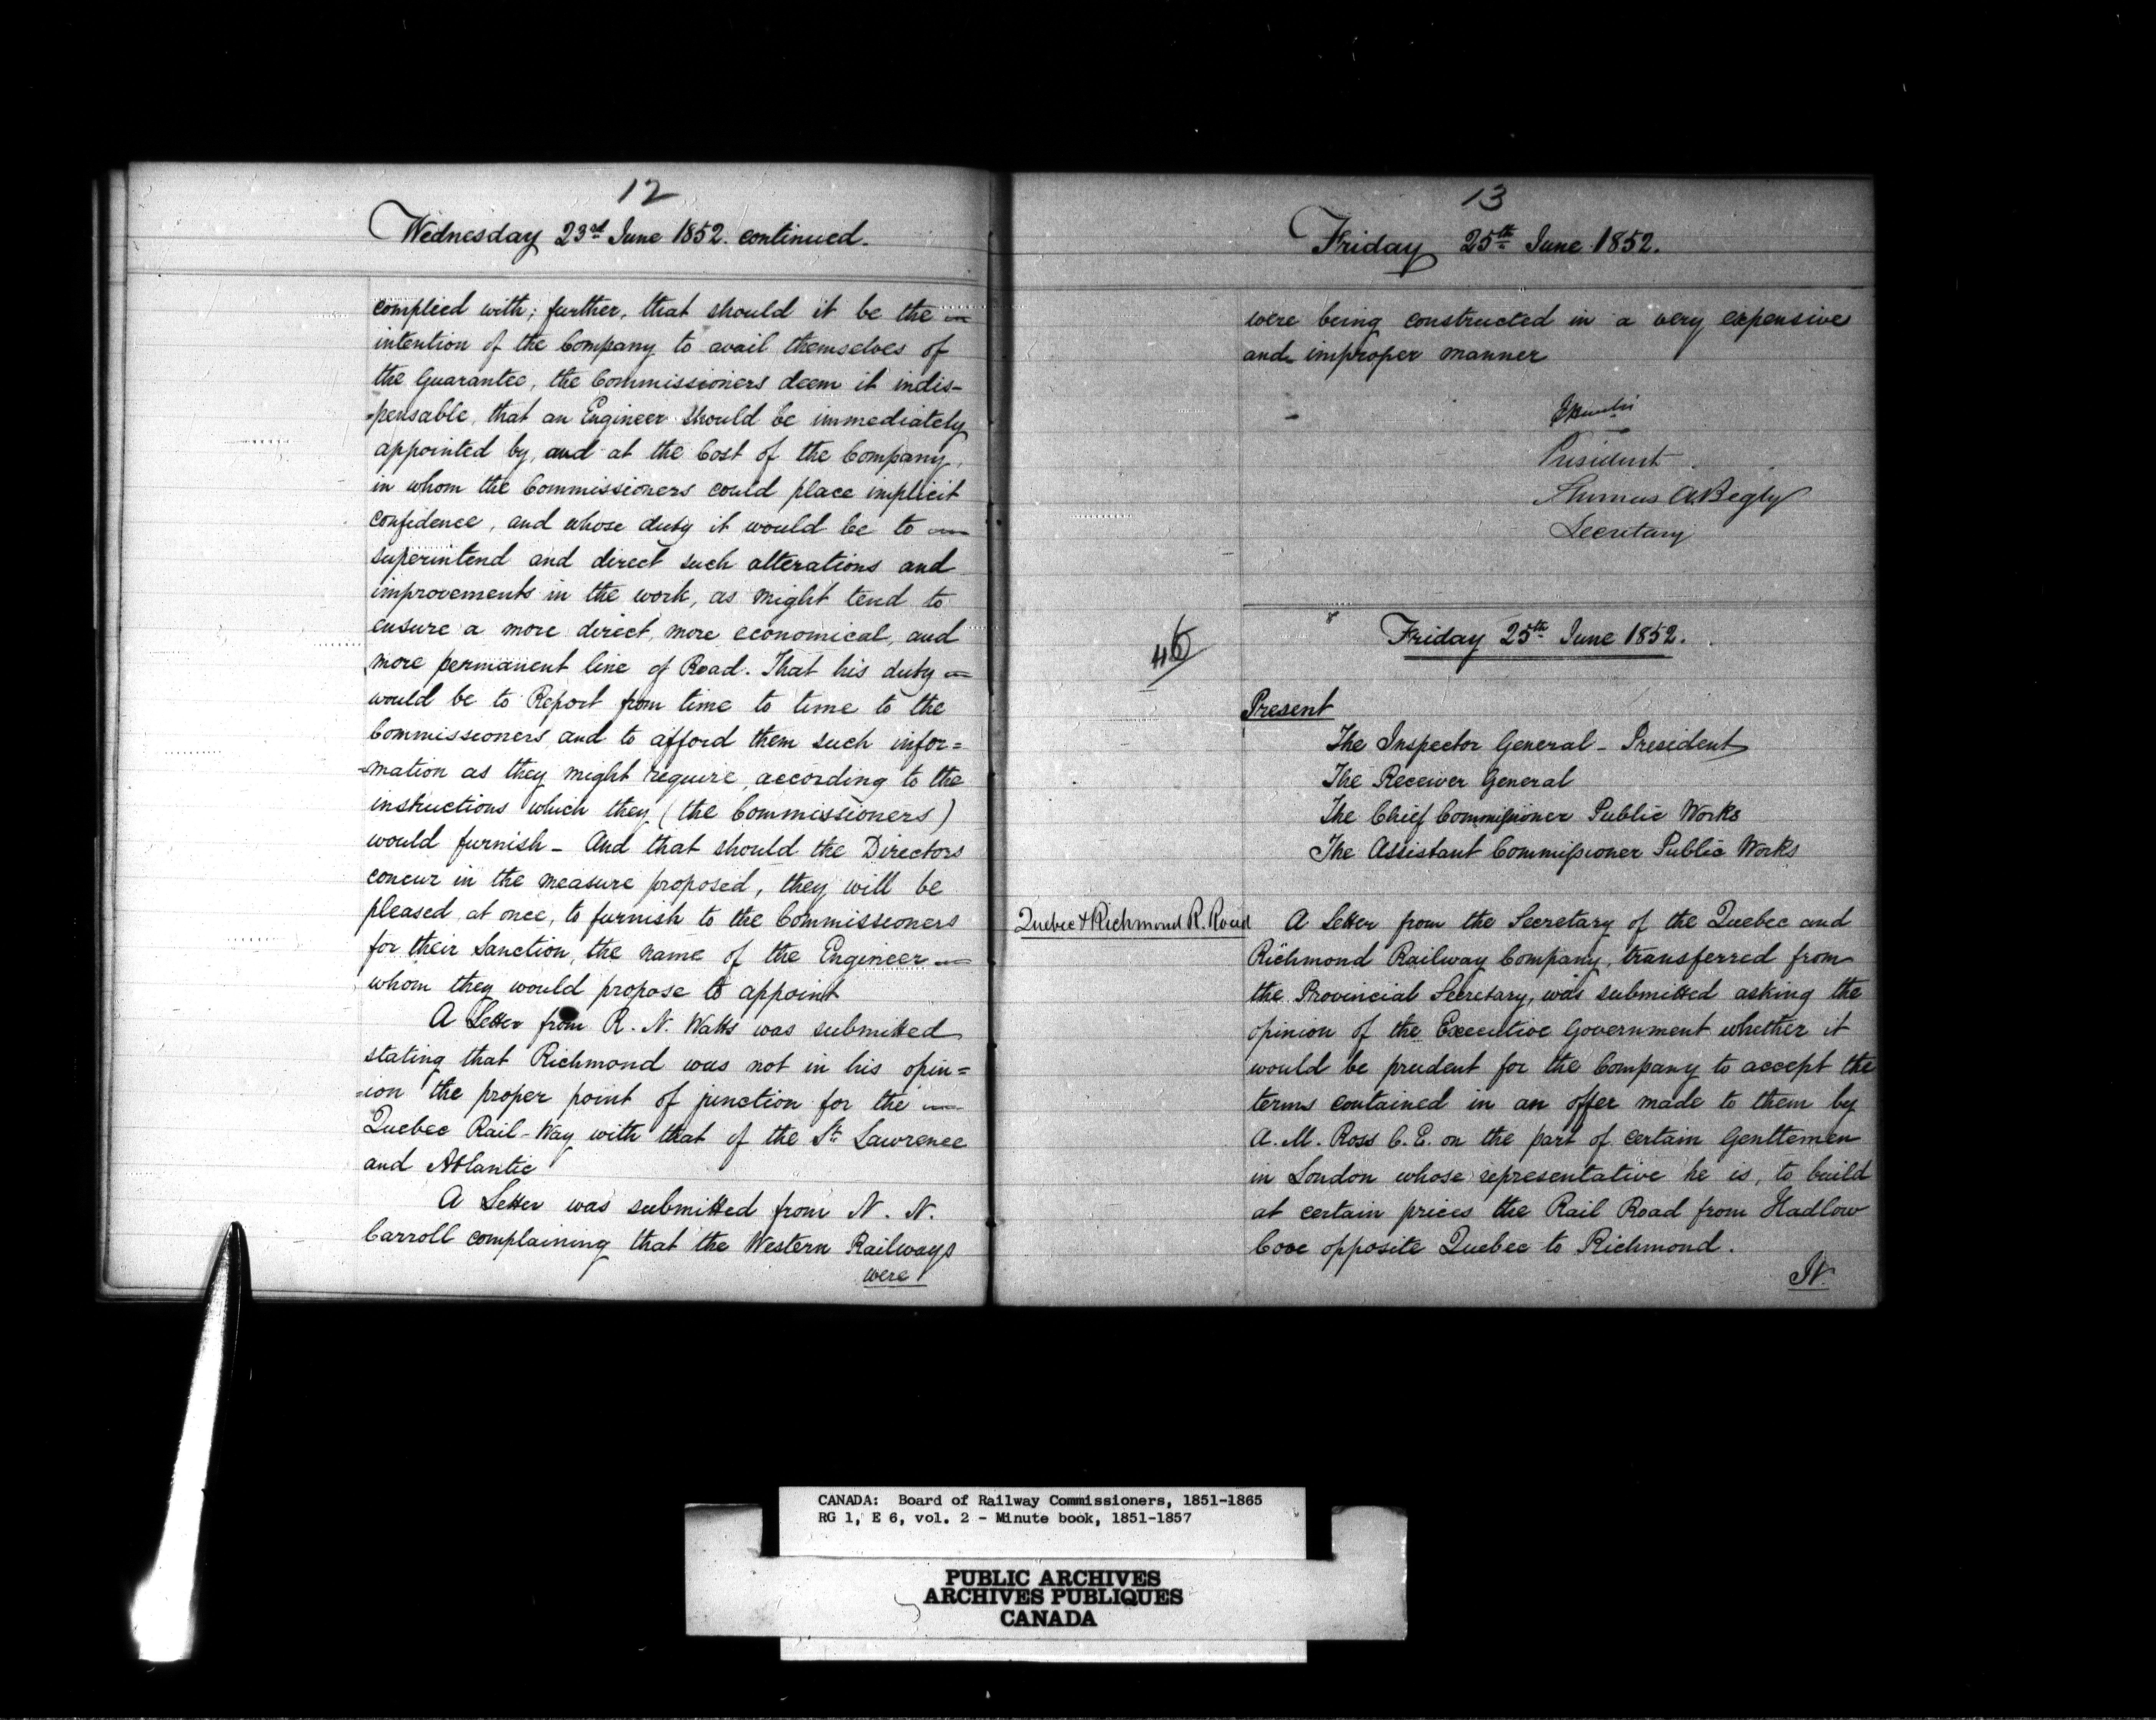 12
Wednesday 23rd June 1852. continued.
complied with; further, that should it be the —
intention of the Company to avail themselves of
the Guarantee, the Commissioners deem it indis-
-pensable, that an Engineer should be immediately
appointed by, and at the Cost of the Company,
in whom the Commissioners could place implicit
confidence, and whose duty it would be to —
superintend and direct such alterations and
improvements in the work, as might tend to
ensure a more direct, more economical, and
more permanent line of Road. That his duty —
would be to Report from time to time to the
Commissioners and to afford them such infor=
-mation as they might require, according to the
instructions which they (the Commissioners)
would furnish - And that should the Directors
concur in the measure proposed, they will be
pleased at once, to furnish to the Commissioners
for their Sanction, the name of the Engineer —
whom they would propose to appoint
A Letter from R. N. Watts was submitted
stating that Richmond was not in his opin=
=ion the proper point of junction for the —
Quebec Rail-Way with that of the St. Lawrence
and Atlantic
A Letter was submitted from N. N.
Carroll complaining that the Western Railways
were
13
Friday 25th June 1852.
were being constructed in a very expensive
and improper manner
President
Thomas A Begly
Secretary
Friday 25th June 1852.
Present
The Inspector General - President
The Receiver General
The Chief Commissioner Public Works
The Assistant Commissioner Public Works
Quebec & Richmond R. Road
A Letter from the Secretary of the Quebec and
Richmond Railway Company, transferred from
the Provincial Secretary, was submitted asking the
opinion of the Executive Government whether it
would be prudent for the Company to accept the
terms contained in an offer made to them by
A. M. Ross C. E. on the part of certain Genttemen
in London whose representative he is, to build
at certain prices the Rail Road from Hadlow
Cove opposite Quebec to Richmond.
It
CANADA: Board of Railway Commissioners, 1851-1865
RG 1, E 6, vol. 2 - Minute book, 1851-1857
PUBLIC ARCHIVES
ARCHIVES PUBLIQUES
CANADA